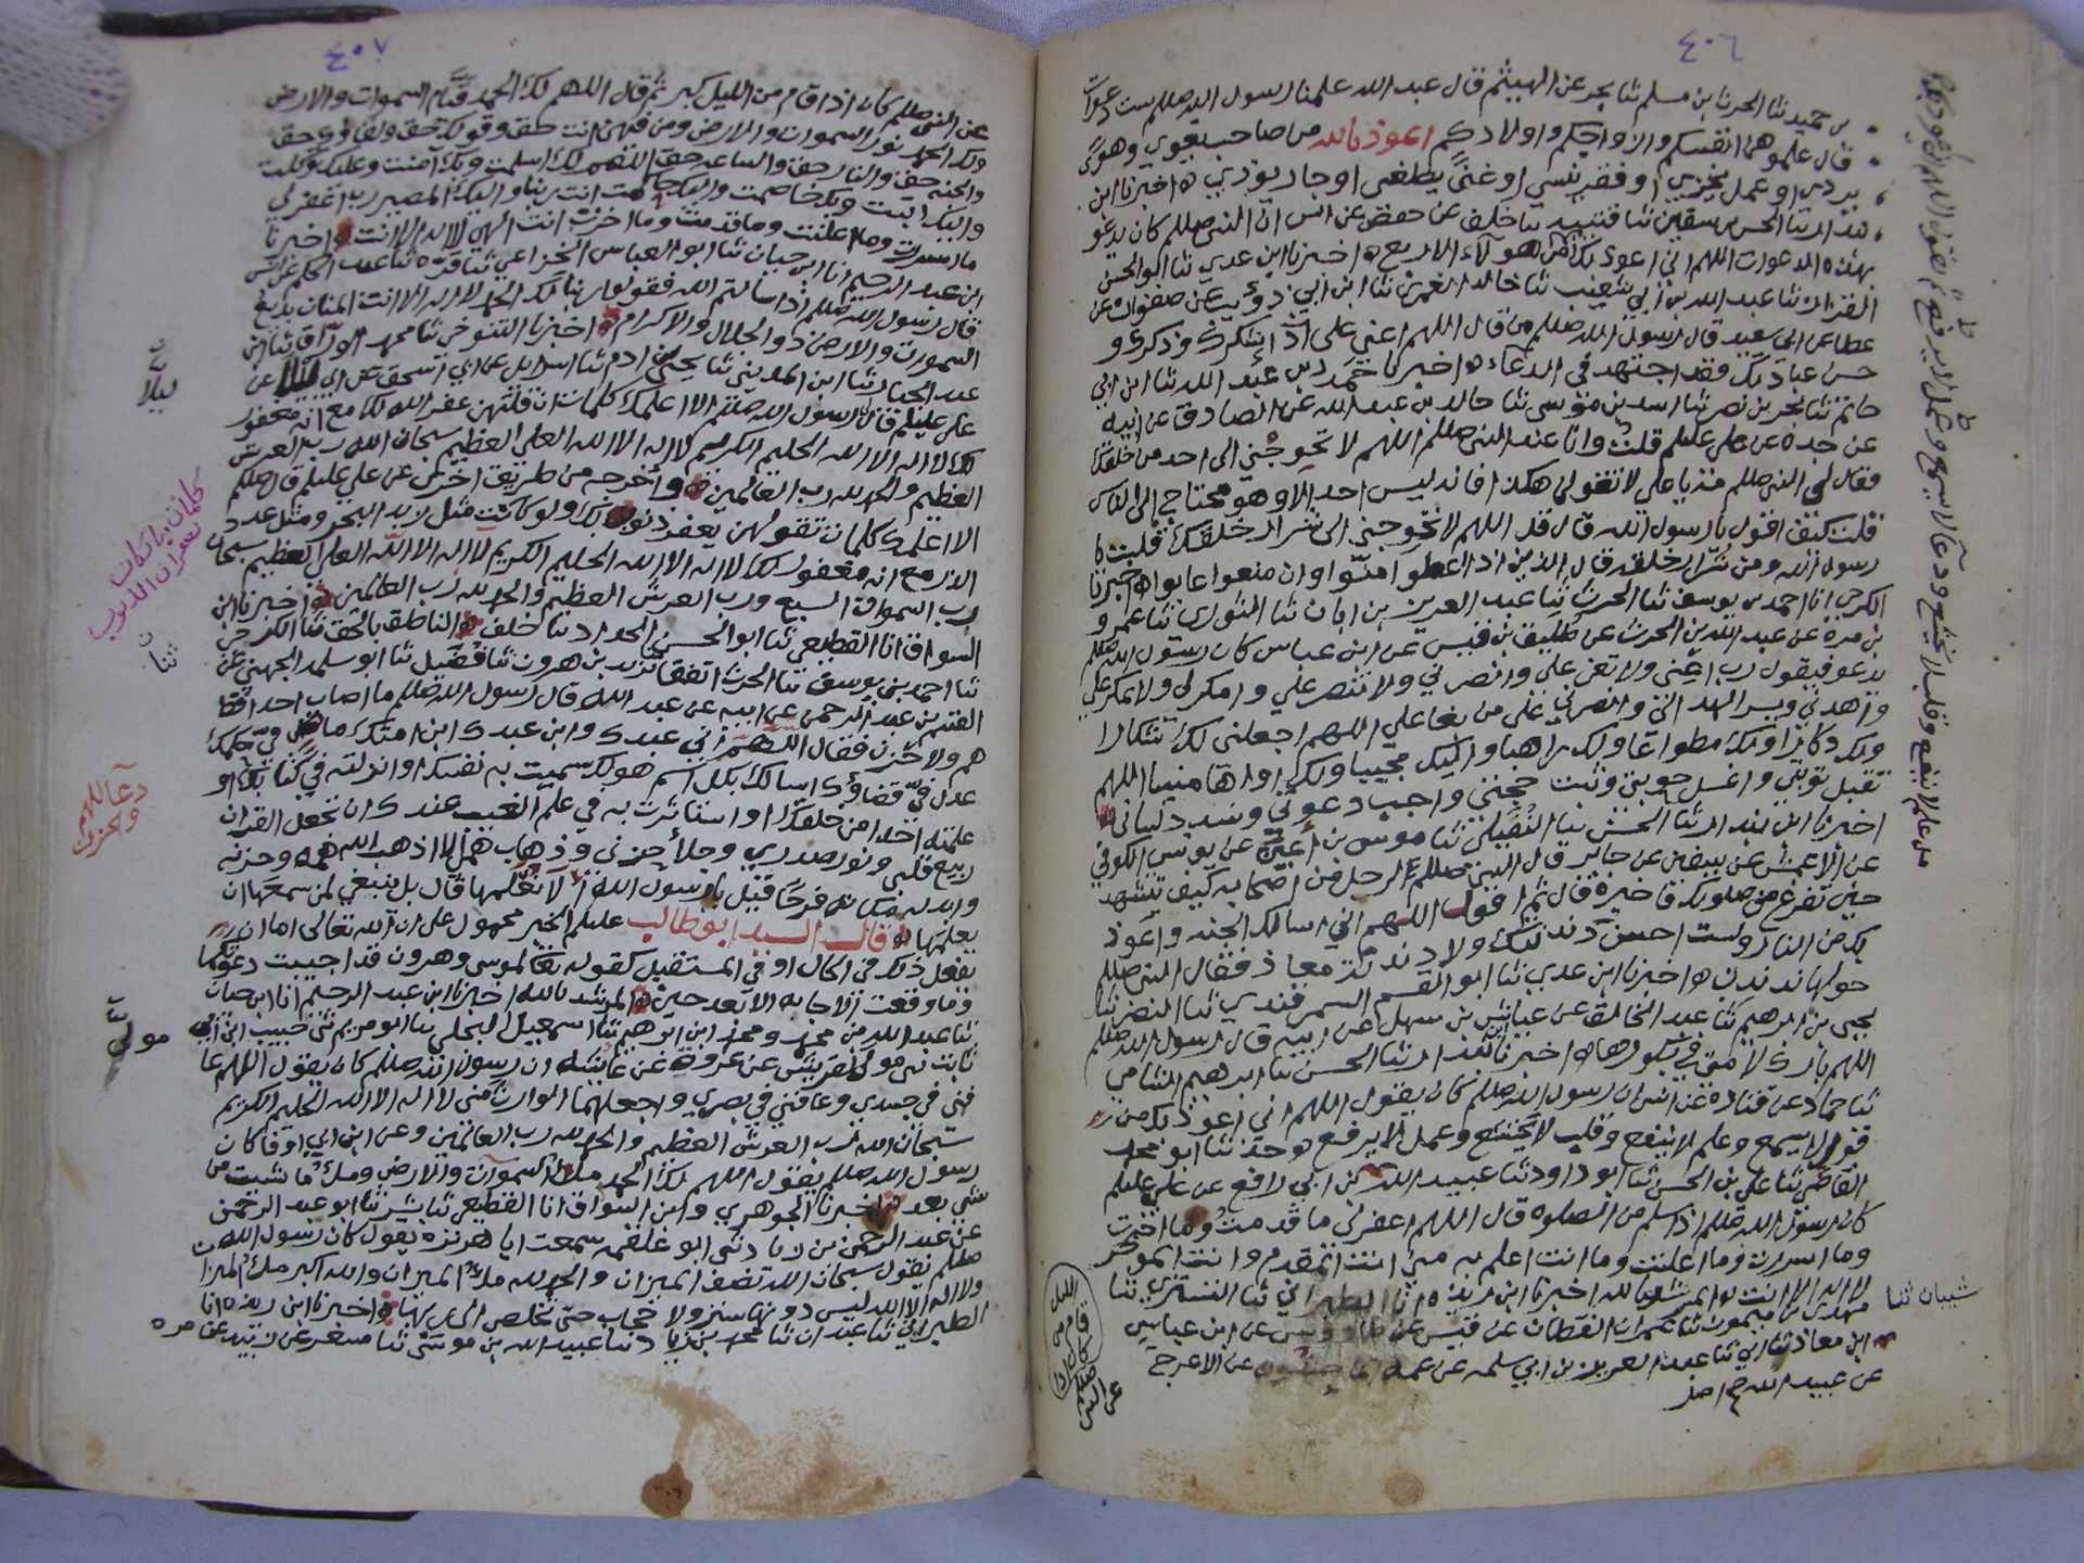 ٤٠٦
بن حميد ثنا الحرث بن مسلم ثنا بحر عن الهيثم قال عبد الله علمنا رسول الله صللم ست دعوات
قال علموهما انفسكم وازواجكم واولادكم اعوذ بالله من صاحب يغوي وهوى
يردي او عمل يخزي او فقر ينسي او غنى يطغى او جار يوذي ه اخبرنا ابن
بندار ثنا الحسن بن سفين ثنا قتيبه ثنا خلف عن حفص عن انس ان النبي صللم كان يدعو
بهذه الدعوات اللهم اني اعوذ بك من هولاء الاربع ه اخبرنا ابن عدي ثنا ابو الحسن
عطا عن ابي سعيد قال رسول الله صللم من قال اللهم اعني على اداء شكرك وذكرك و
حسن عبادتك فقد اجتهد في الدعاء ه اخبرنا حمد بن عبد الله ثنا ابن ابي
حاتم ثنا بحر بن نصر ثنا اسد بن موسى ثنا خالد بن عبد الله عن الصادق عن ابيه
عن جده عن علي عليلم قلت وانا عند النبي صللم اللهم لا تحوجني الى احد من خلقك
فقال لي النبي صللم مه يا علي لا تقولن هكذا فانه ليس احد الا وهو محتاج الى الناس
قلت كيف اقول يا رسول الله قال قل اللهم لا تحوجني الى شرار خلقك قلت يا
رسول الله ومن شرار خلقه قال الذين اذا اعطوا امنوا وان منعوا عابوا ه اخبرنا
الكرجي انا احمد بن يوسف ثنا الحرث ثنا عبد العزيز بن ابان ثنا الثوري ثنا عمرو
بن مره عن عبد الله بن الحرث عن طليق بن قيس عن ابن عباس كان رسول الله صللم
يدعو فيقول رب اعني ولا تعن علي وانصرني ولا تنصر علي وامكر لي ولا تمكر علي
واهدني ويسر الهدى الي وانصرني على من بغا علي اللهم اجعلني لك شكارا
ولك ذكارا ولك مطواعا ولك راهبا واليك مخبتا ولك اواها منيبا اللهم
تقبل توبتي واغسل حوبتي وثبت حجتي واجب دعوتي وسدد لساني
اخبرنا ابن بندار ثنا الحسن ثنا النفيلي ثنا موسى بن اعين عن يونس الكوفي
عن الاعمش عن عن جابر قال النبي صللم لرجل من اصحابه كيف تتشهد
حين تفرغ من صلوتك فاخبره قال ثم اقول اللهم اني اسالك الجنه واعوذ
بك من النار ولست احسن دندنتك ولا دندنة معاذ فقال النبي صللم
حولها ندندن ه اخبرنا ابن عدي ثنا ابو القسم السمرقندي ثنا النضر ثنا
يحيى بن ابرهيم ثنا عبد الخالق عن عباس بن سهل عن ابيه قال رسول الله صللم
اللهم بارك لامتي في بكورها ه اخبرنا ابن بندار ثنا الحسن ثنا ابرهيم الشامي
ثنا حماد عن قتاده عن انس ان رسول الله صللم كان يقول اللهم اني اعوذ بك من
قول لا يسمع وعلم لا ينفع وقلب لا يخشع وعمل لا يرفع ه حدثنا ابو محمد
القاضي ثنا علي بن الحسن ثنا ابو داود ثنا عبيد الله بن ابي رافع عن علي عليلم
كان رسول الله صللم اذا سلم من الصلوه قال اللهم اغفر لي ما قدمت وما اخرت
وما اسررت وما اعلنت وما انت اعلم به مني انت المقدم وانت الموخر
لا اله الا انت ه المرشد بالله اخبرنا ابن ريذه انا الطبراني ثنا التستري ثنا
مهدي بن ميمون ثنا عمران القطان عن قيس عن طاووس عن ابن عباس
ابن معاذ ثنا ابي ثنا عبد العزيز بن ابي سلمه عن عمه الماجشون عن الاعرج
عن عبيد الله صح اصل
شيبان ثنا
الليل
قام من
كان اذا
صللم
عن النبي
٤٠٧
عن النبي صللم كان اذا قام من الليل كبر ثم قال اللهم لك الحمد قيام السموات والارض
ولك الحمد نور السموات والارض ومن فيهن انت حق وقولك حق ولقاوك حق
والجنه حق والنار حق والساعه حق اللهم لك اسلمت وبك آمنت وعليك توكلت
واليك انبت وبك خاصمت واليك حاكمت انت ربنا واليك المصير رب اغفر لي
ما اسررت وما اعلنت وما قدمت وما اخرت انت الهي لا اله الا انت ه اخبرنا
ابن عبد الرحيم انا ابن حيان ثنا ابو العباس الخزاعي ثنا قره ثنا عبد الحكم عن انس
قال رسول الله صللم اذا سالتم الله فقولوا ربنا لك الحمد لا اله الا انت المنان بديع
السموات والارض ذو الجلال والاكرام ه اخبرنا التنوخي ثنا محمد الوراق ثنا ابن
عبد الجبار ثنا ابن المديني ثنا يحيى بن ادم ثنا اسرايل عن ابي اسحق عن ابن ابي ليلا عن
علي عليلم قال رسول الله صللم الا اعلمك كلمات ان قلتهن غفر الله لك مع انه مغفور
لك لا اله الا الله الحليم الكريم لا اله الا الله العلي العظيم سبحان الله رب العرش
العظيم والحمد لله رب العالمين ه واخرجه من طريق اخرى عن علي عليلم قال صللم
الا اعلمك كلمات تقولهن يغفر ذنوبك ولو كانت مثل زبد البحر ومثل عدد
الذر مع انه مغفور لك لا اله الا الله الحليم الكريم لا اله الا الله العلي العظيم سبحان
رب السموات السبع ورب العرش العظيم والحمد لله رب العالمين ه اخبرنا ابن
السواق انا القطيعي ثنا ابو الحسن الحداد ثنا خلف ه الناطق بالحق ثنا الكرجي
ثنا احمد بن يوسف ثنا الحرث اتفقا يزيد بن هرون ثنا فضيل ثنا ابو سلمه الجهني عن
القسم بن عبد الرحمن عن ابيه عن عبد الله قال رسول الله صللم ما اصاب احدا قط
هم ولا حزن فقال اللهم اني عبدك وابن عبدك ابن امتك ماض في حكمك
عدل في قضاؤك اسالك بكل اسم هو لك سميت به نفسك او انزلته في كتابك او
علمته احدا من خلقك او استاثرت به في علم الغيب عندك ان تجعل القران
ربيع قلبي ونور صدري وجلاء حزني وذهاب همي الا اذهب الله همه وحزنه
وابدله مكانه فرحا قيل يا رسول الله الا نتعلمها قال بل ينبغي لمن سمعها ان
يعلمها ه قال السيد ابو طالب عليلم الخبر محمول على ان الله تعالى اما ان
يفعل ذلك في الحال او في المستقبل كقوله تعالى لموسى وهرون قد اجيبت دعوتكما
وما وقعت الاجابه الا بعد حين ه المرشد بالله اخبرنا ابن عبد الرحيم انا ابن حيان
ثنا عبد الله بن محمد ومحمد ابن ابرهيم ثنا اسمعيل البجلي ثنا ابو مريم ثني حبيب ابن ابي
ثابت ثني مولى لقريش عن عروه عن عايشه ان رسول الله صللم كان يقول اللهم عا
فني في جسدي وعافني في بصري واجعلهما الوارث مني لا اله الا الله الحليم الكريم
سبحان الله رب العرش العظيم والحمد لله رب العالمين وعن ابن ابي اوفا كان
رسول الله صللم يقول اللهم لك الحمد ملء السموات والارض وملء ما شئت من
شي بعد ه اخبرنا الجوهري وابن السواق انا القطيعي ثنا بشر ثنا ابو عبد الرحمن
عن عبد الرحمن بن زياد ثني ابو علقمه سمعت ابا هريره يقول كان رسول الله
صللم يقول سبحان الله نصف الميزان والحمد لله ملء الميزان والله اكبر ملء الميزا
ولا اله الا الله ليس دونها ستر ولا حجاب حتى تخلص الى ربها ه اخبرنا ابن ريذه انا
الطبراني ثنا عبدان ثنا محمد بن زياد ثنا عبيد الله بن موسى ثنا مسعر عن زبيد عن مره
ليلا
كلمات
يغفران الذنوب
ثنا
دعا للهم
والحزن
مولى